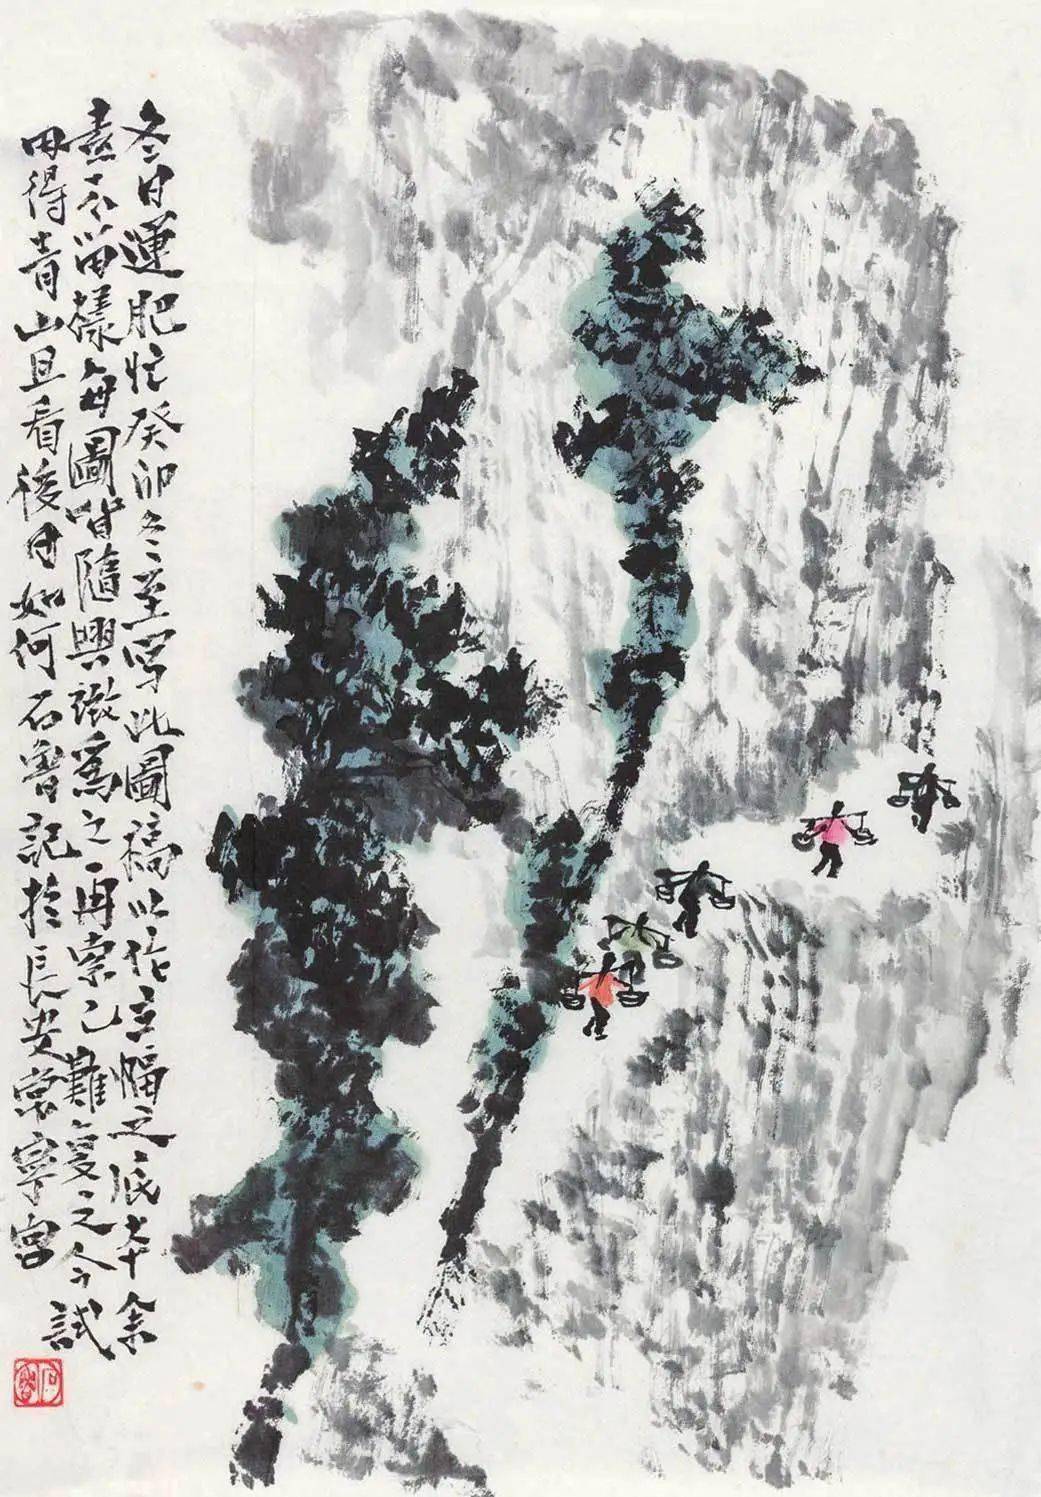 冬日運肥忙癸卯冬至写此圖稿以作立幅之底本余
素不留樣每圖皆隨興緻為之再索已難复之今試
留得青山且看後日如何石魯記於長安常寧宮
石魯